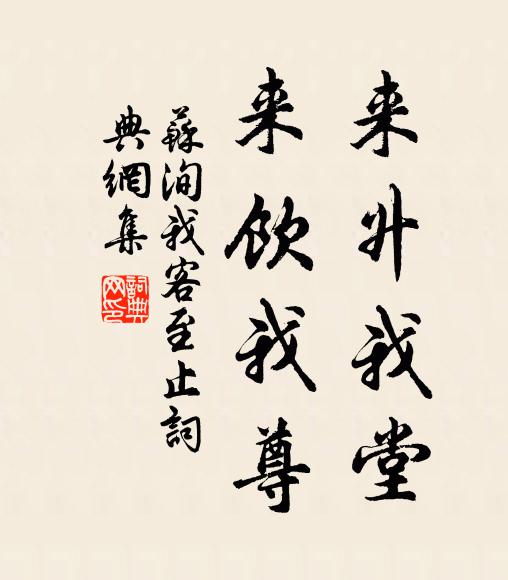 来升我堂
来飲我尊
蘇洵我客至止詞
典網集
詞典
网印